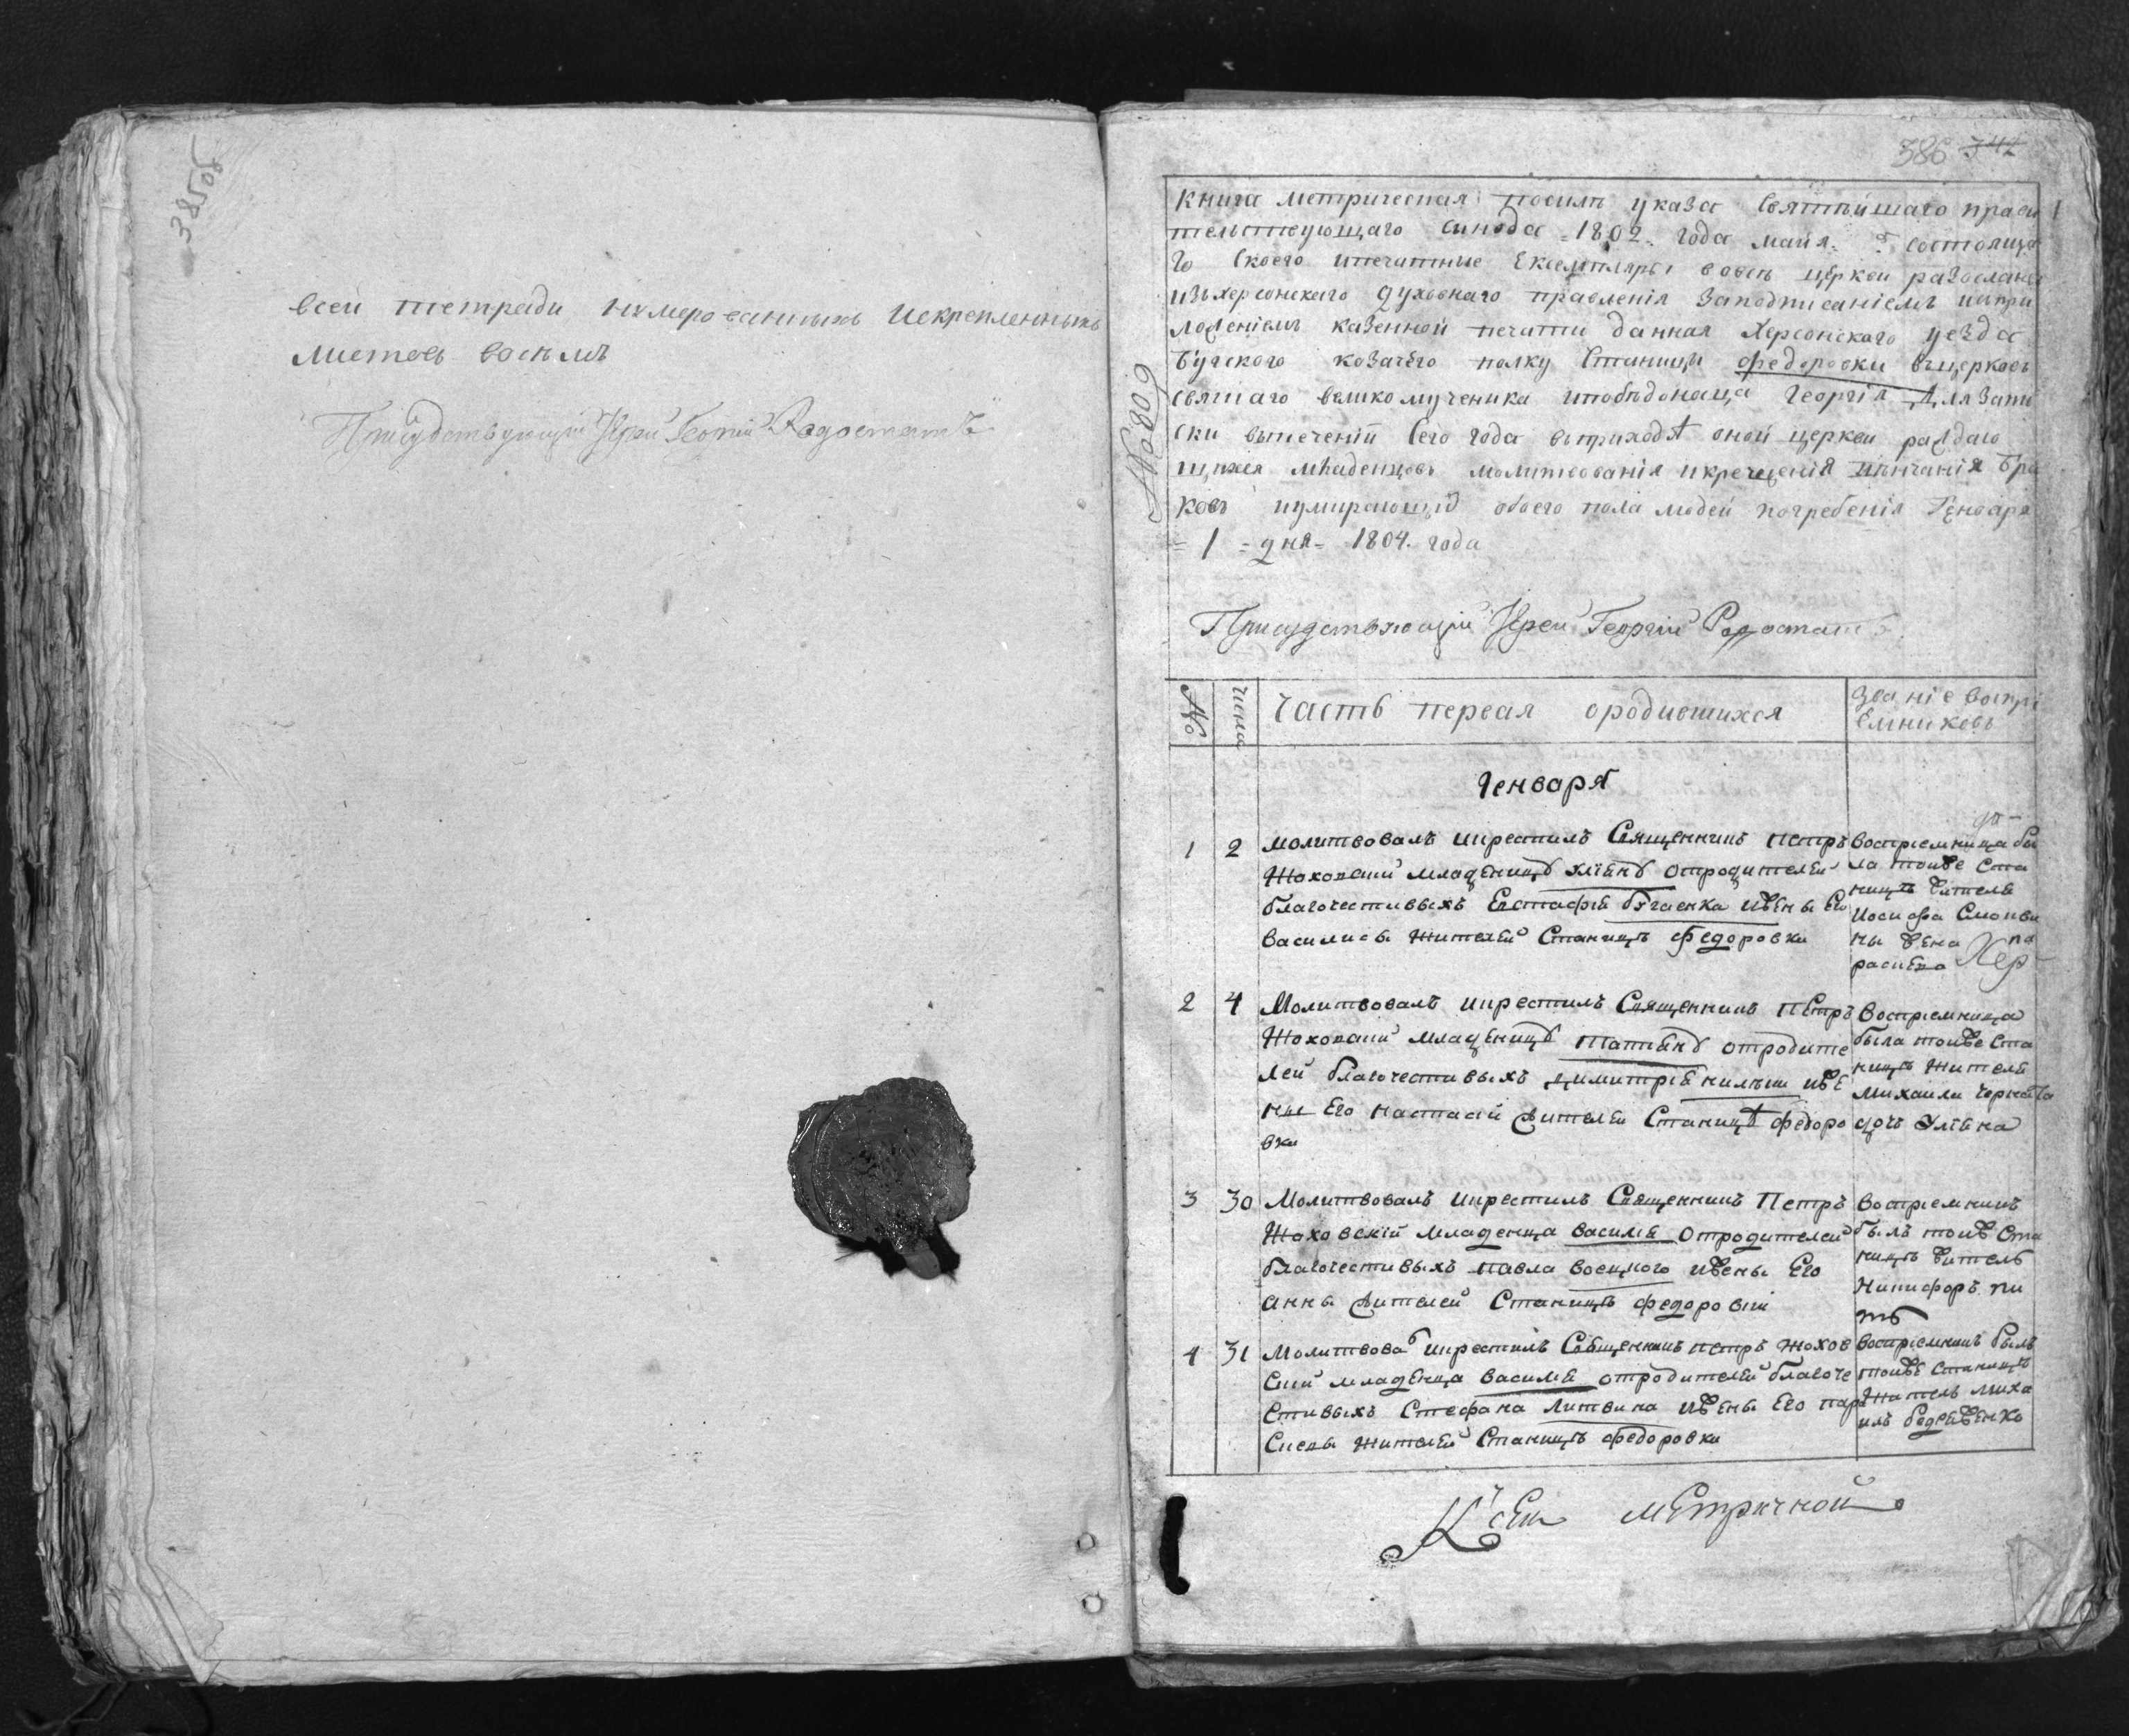 385об
всей тетради нумерованныхъ искрепленныхъ
листовъ восѣмъ
Присудствующий Иерей Георгий
386 342
1
Книга метрическая посилѣ указа святѣйшаго прави
тельствующаго синода 1802 года майя состоявша
го скоего ипечатные екземпляры вовсѣ церкви разосланы
изъ херсонскаго духовнаго правленія заподписаніемъ иипри
ложеніемъ казенной печати данная Херсонскаго уезда
Бугского козачего полку станици федоровки вцерковь
святаго великомученика ипобѣдоносца георгія Для запи
ски вытечений сего года вприходѣ оной церкви раждаю
щихся младенцовъ молитвованія икрещенія вѣнчанія бра
ковъ иумирающихъ обоего пола людей погребенія Генваря
1 дня 1804 года
№ 6809
Присудствующий Иерей Георгий
№
числа
Часть первая ородившихся
Званіе воспрі
емниковъ
Генваря
1 2 молитвовалъ икрестилъ Священникъ петръ
Жоховский младеницу отродителей
благочестивыхъ Евстафия Бугаенка ижены Его
василисы жителей Станицъ федоровки
воспрiемница бы
ла тоиже ста
ницъ жителя
иосифа
ны жена па
раскева
2 4 Молитвовалъ икрестилъ Священникъ петръ
Жоховский младеницу татияну отродите
лей благочестивыхъ димитрия иже
ны Его настасии жителей Станицъ федоро
вки
воспрiемница
была тоиже ста
ницъ жителя
михаила
дочь Улияна
3 30 Молитвовалъ икрестилъ Священникъ Петръ
Жоховскiй младенца василия отродителей
благочестивыхъ павла ижены Его
анны жителей Станицъ федоровки
воспрiемникъ
былъ тоиже ста
ницъ житель
никифоръ
4 31 Молитвовалъ икрестилъ Священникъ петръ жохов
ский младенца василия отродителей благоче
стивыхъ Стефана литвина ижены Его пара
скевы жителей Станицъ федоровки
воспрiемникъ былъ
тоиже станицъ
житель миха
илъ
Ксей метричной